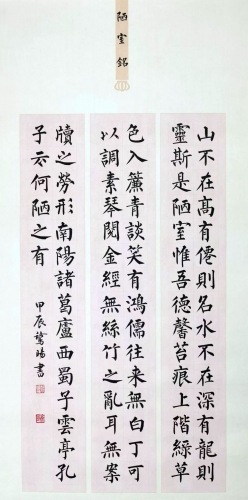 陋室銘
山不在高有僊則名水不在深有龍則
靈斯是陋室惟吾德馨苔痕上階綠草
色入簾青談笑有鴻儒往來無白丁可
以調素琴閱金經無絲竹之亂耳無案
牘之勞形南陽諸葛廬西蜀子雲亭孔
子云何陋之有
甲辰書